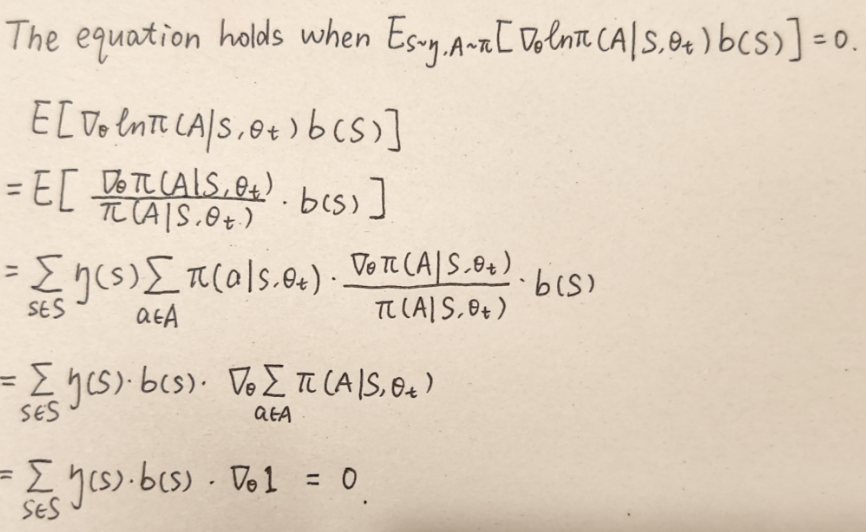 The equation holds when E_{S~η,A~π}[∇_θ lnπ(A|S,θ_t)b(S)]=0.
E[∇_θ lnπ(A|S,θ_t)b(S)]
= E[ ∇_θ π(A|S,θ_t) / π(A|S,θ_t) · b(S) ]
= Σ_{s∈S} η(s) Σ_{a∈A} π(a|s,θ_t) · ∇_θ π(A|S,θ_t) / π(A|S,θ_t) · b(S)
= Σ_{s∈S} η(s)·b(s)· ∇_θ Σ_{a∈A} π(A|S,θ_t)
= Σ_{s∈S} η(s)·b(s) · ∇_θ 1 = 0.